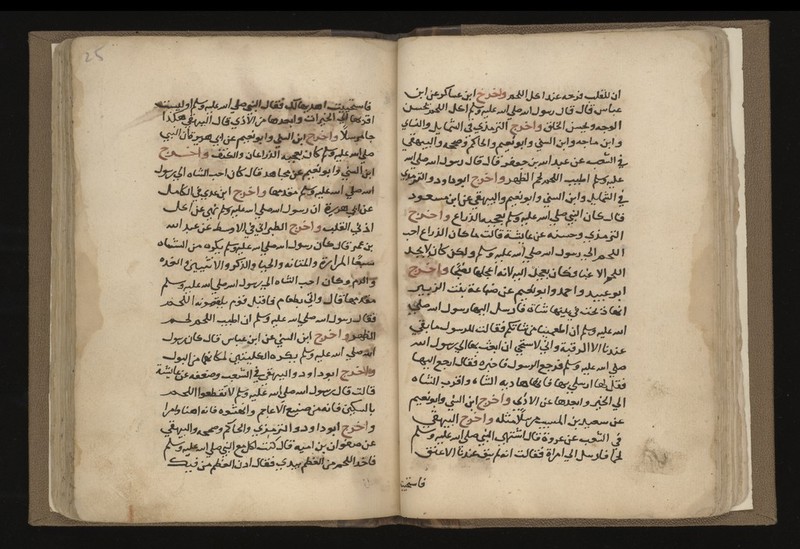 ان للقلب فرحه عند اكل اللحم واخرج ابن عساكر عن ابن
عباس قال قال رسول الله صلى الله عليه وسلم اكل اللحم يحسن
الوجه ويحسن الخلق واخرج الترمذي في الشمايل والنساي
وابن ماجه وابن السني وابو نعيم والحاكم وصححه والبيهقي
في الشعب عن عبد الله بن جعفر قال قال رسول الله صلى الله
عليه وسلم اطيب اللحم لحم الظهر واخرج ابو داود والترمذي
في الشمايل وابن السني وابو نعيم والبيهقي عن ابن مسعود
قال كان النبي صلى الله عليه وسلم يعجبه الذراع واخرج
الترمذي وحسنه عن عايشة قالت ما كان الذراع احب
اللحم الى رسول الله صلى الله عليه وسلم ولكن كان لا يجد
اللحم الا غبا وكان يعجل اليها لانه اعجلها نضجا واخرج
ابو عبيد واحمد وابو نعيم عن ضباعة بنت الزبير
انها ذبحت في بيتها شاة فارسل اليها رسول الله صلى
الله عليه وسلم ان اطعمينا من شاتكم فقالت للرسول ما بقي
عندنا الا الرقبة واني لاستحي ان ابعث بها الى رسول الله
صلى الله عليه وسلم فرجع الرسول فاخبره فقال ارجع اليها
فقل لها ارسلي بها فانها هادية الشاء واقرب الشاة
الى الخير وابعدها عن الاذى واخرج ابن السني وابو نعيم
عن سعيد بن المسيب مرسلا مثله واخرج البيهقي
في الشعب عن عروة قال اشتهى النبي صلى الله عليه وسلم
لحما فارسل الى امراة فقالت انه لم يبق عندنا الا عنق
فاستحييت
25
فاستحييت اهديها لك فقال النبي صلى الله عليه وسلم اوليست
اقربها الى الخيرات وابعدها من الاذى قال البيهقي هكذا
جا مرسلا واخرج ابن السني وابو نعيم عن ابي هريرة كان النبي
صلى الله عليه وسلم كان يعجبه الذراعان والكتف واخرج
ابن السني وابو نعيم عن مجاهد قال كان احب الشاة الى رسول
الله صلى الله عليه وسلم مقدمها واخرج ابن عدي في الكامل
عن ابي هريرة ان رسول الله صلى الله عليه وسلم نهى عن اكل
اذني القلب واخرج الطبراني في الاوسط عن عبد الله
بن عمر قال كان رسول الله صلى الله عليه وسلم يكره من الشاة
سبعا المرارة والمثانه والحيا والذكر والانثيين والغده
والدم وكان احب الشاة الى رسول الله صلى الله عليه وسلم
مقدمها قال واتي بطعام فاقبل قوم يلقمونه اللحم
فقال رسول الله صلى الله عليه وسلم ان اطيب اللحم لحم
الظهر واخرج ابن السني عن ابن عباس قال كان رسول
الله صلى الله عليه وسلم يكره الكليتين لمكانهما من البول
واخرج ابو داود والبيهقي في الشعب وضعفه عن عايشة
قالت قال رسول الله صلى الله عليه وسلم لا تقطعوا اللحم
بالسكين فانه من صنيع الاعاجم وانهشوه فانه اهنا وامرا
واخرج ابو داود والترمذي والحاكم وصححه والبيهقي
عن صفوان بن اميه قال كنت اكل مع النبي صلى الله عليه وسلم
فاخذ اللحم من العظم بيدي فقال ادن العظم من فيك